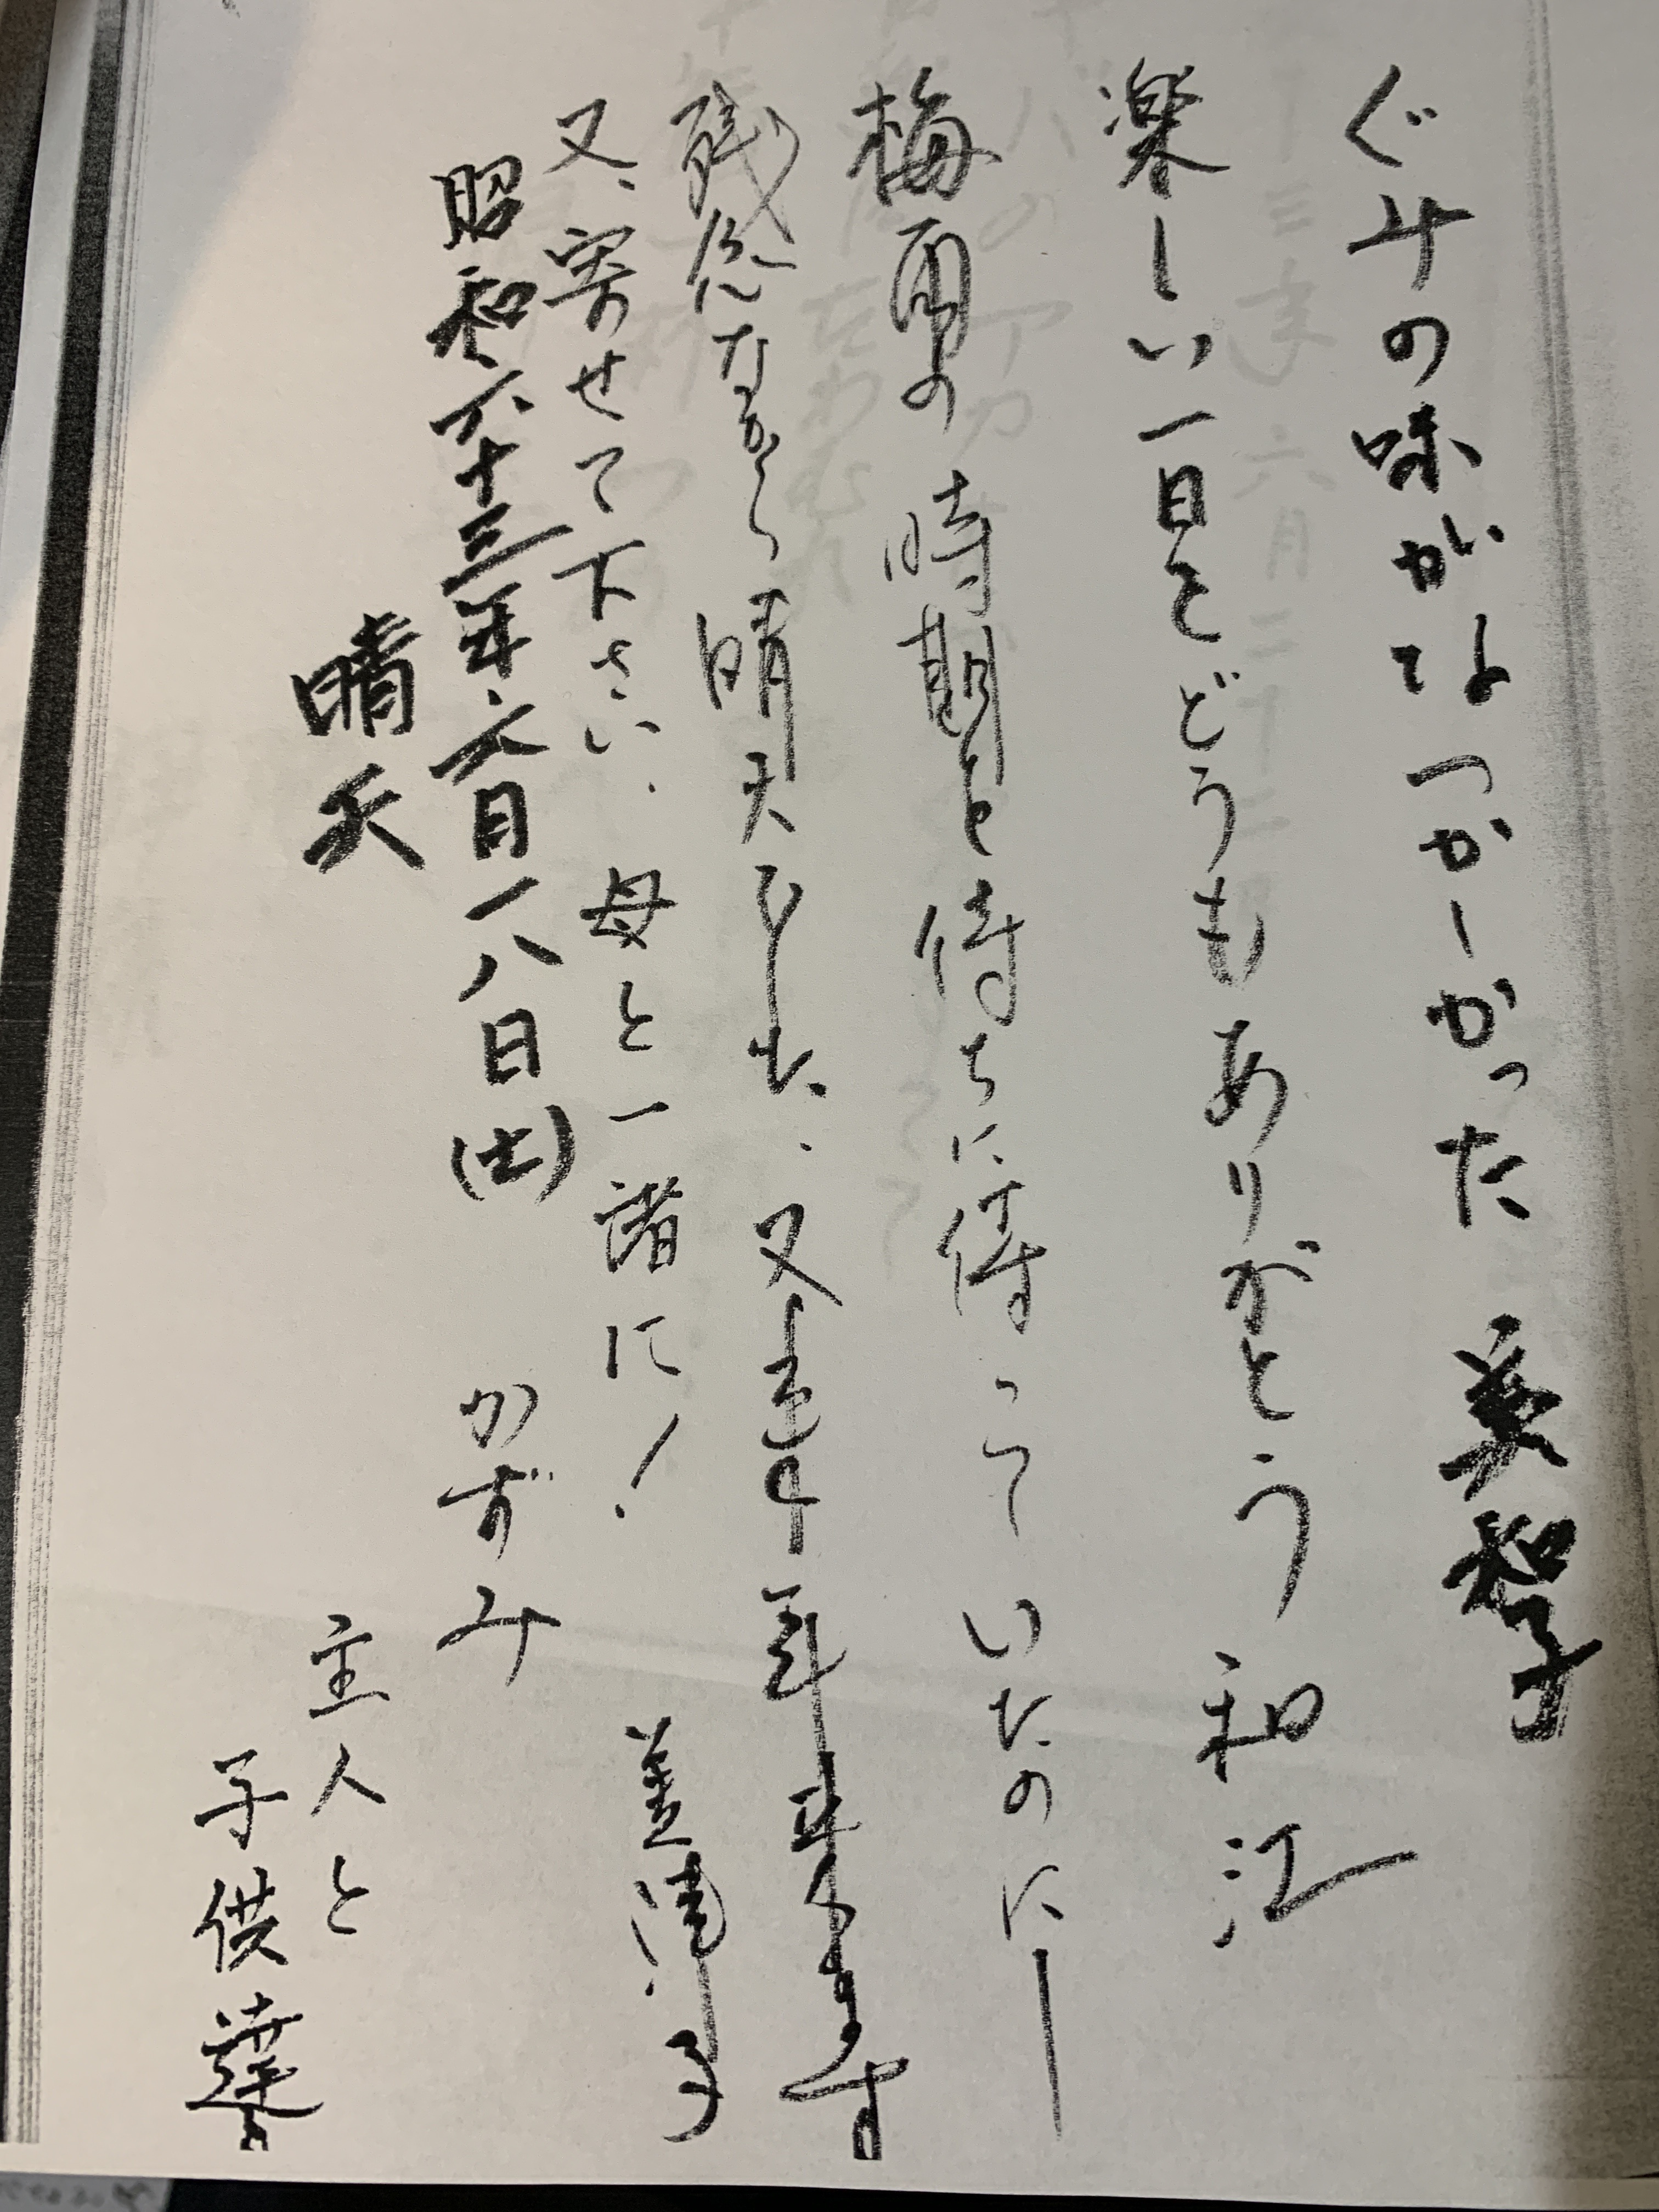 ぐみの味がなつかしかった 美智子
楽しい一日をどうもありがとう 和江
梅雨の時期を待ちに待っていたのにー
残念ながら晴天でした、又来年来ます
又、寄せて下さい、母と一諸に！
昭和六十三年、六月一八日(土) かずみ
晴天 主人と
子供達